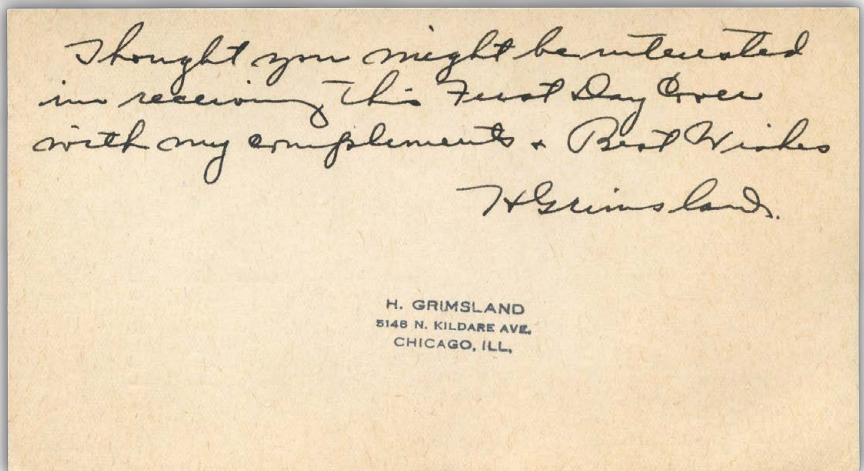 Thought you might be interested
in receiving this First Day Cover
with my complements & Best Wishes
H Grimsland.
H. GRIMSLAND
5148 N. KILDARE AVE.
CHICAGO, ILL.